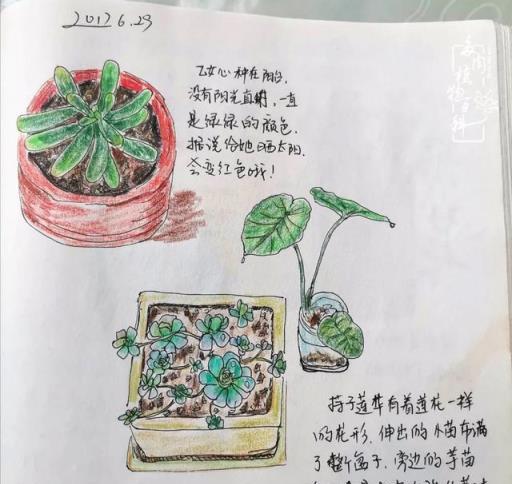 2017.6.29
乙女心种在阳台,
没有阳光直射,一直
是绿绿的颜色.
据说给她晒太阳,
会变红色哦!
植物百科
持子莲华有着莲花一样
的花形,伸出的小苗布满
了整个盆子,旁边的芋苗